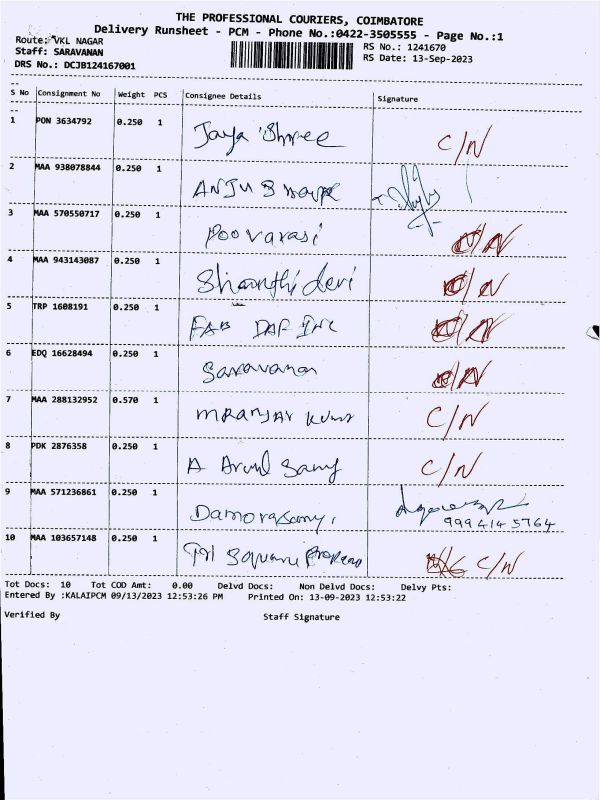 THE PROFESSIONAL COURIERS, COIMBATORE
Delivery Runsheet - PCM - Phone No.:0422-3505555 - Page No.:1
Route: VKL NAGAR
RS No.: 1241670
Staff: SARAVANAN
RS Date: 13-Sep-2023
DRS No.: DCJB124167001
S No Consignment No Weight PCS Consignee Details Signature
1 PON 3634792 0.250 1 Jaya Shree C/N
2 MAA 938078844 0.250 1 ANJU
3 MAA 570550717 0.250 1 Poovarasi C/N
4 MAA 943143087 0.250 1 Shanthi devi C/N
5 TRP 1608191 0.250 1 FAB DAF INC C/N
6 EDQ 16628494 0.250 1 Saravanan C/N
7 MAA 288132952 0.570 1 MRANJAY KUMR C/N
8 PDK 2876358 0.250 1 A Arul Samy C/N
9 MAA 571236861 0.250 1 Damorasamy 9994145764
10 MAA 103657148 0.250 1 Square C/N
Tot Docs: 10 Tot COD Amt: 0.00 Delvd Docs: Non Delvd Docs: Delvy Pts:
Entered By :KALAIPCM 09/13/2023 12:53:26 PM Printed On: 13-09-2023 12:53:22
Verified By Staff Signature